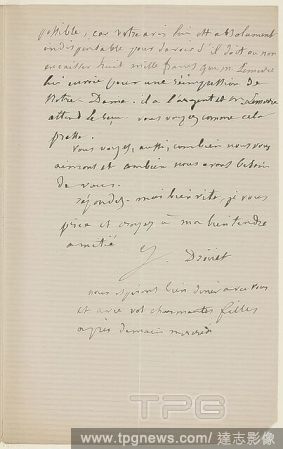 possible, car votre avis lui est absolument
indispensable pour savoir s'il doit ou non
encaisser huit mille francs que Mr Lemerre
lui envoie pour une réimpression de
Notre-Dame. il a l'argent et Mr Lemerre
attend le reçu. vous voyez comme cela
presse.
Vous voyez, aussi, combien nous vous
aimons et combien nous avons besoin
de vous.
répondez-moi bien vite, je vous
prie et croyez à ma bien tendre
amitié
J. Drouet
nous espérons bien diner avec vous
et avec vos charmantes filles
après demain mercredi
TPG
www.tpgnews.com/達志影像